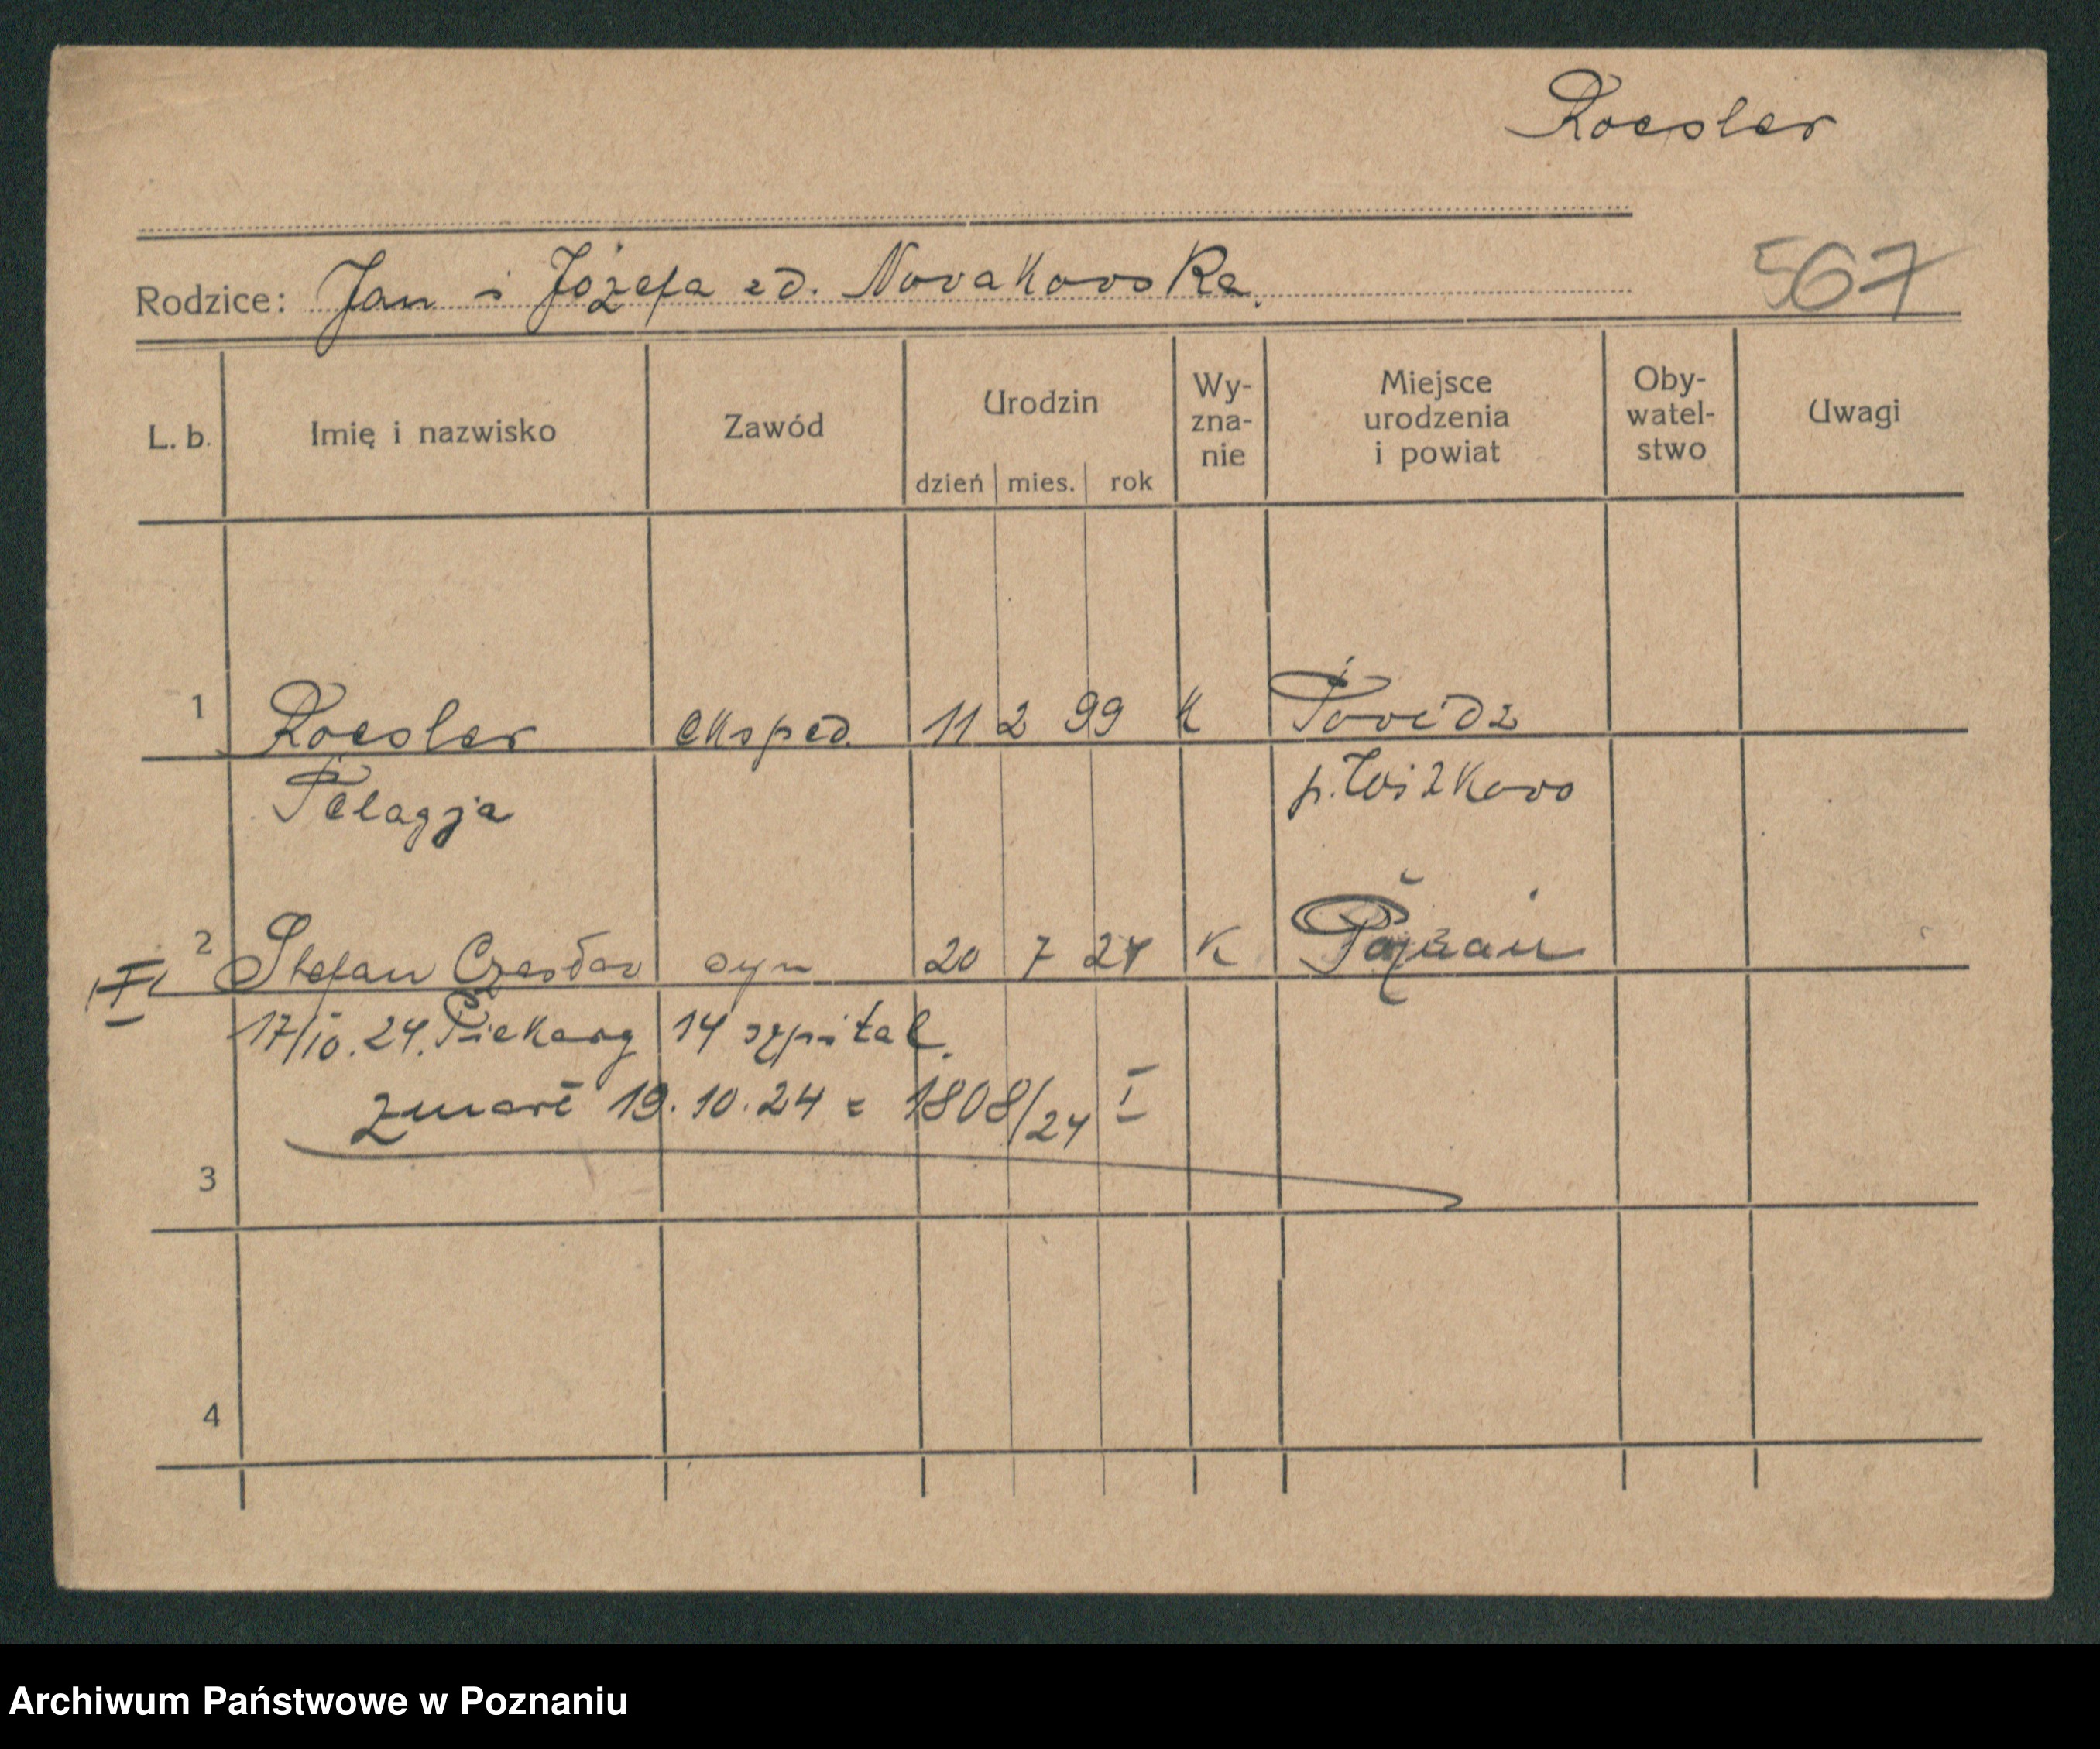 Roesler
Rodzice: Jan i Józefa zd. Novakovska.
567
L. b. Imię i nazwisko Zawód Urodzin dzień mies. rok Wy-zna-nie Miejsce urodzenia i powiat Oby-watel-stwo Uwagi
1 Roesler eksped. 11 2 99 K Povidz
Pelagja p. Witkovo
2 Stefan Czesław syn 20 7 24 K Poznań
17/10. 24. Piekary 14 szpital.
zmarł 19. 10. 24 = 1808/24 I
3
4
Archiwum Państwowe w Poznaniu